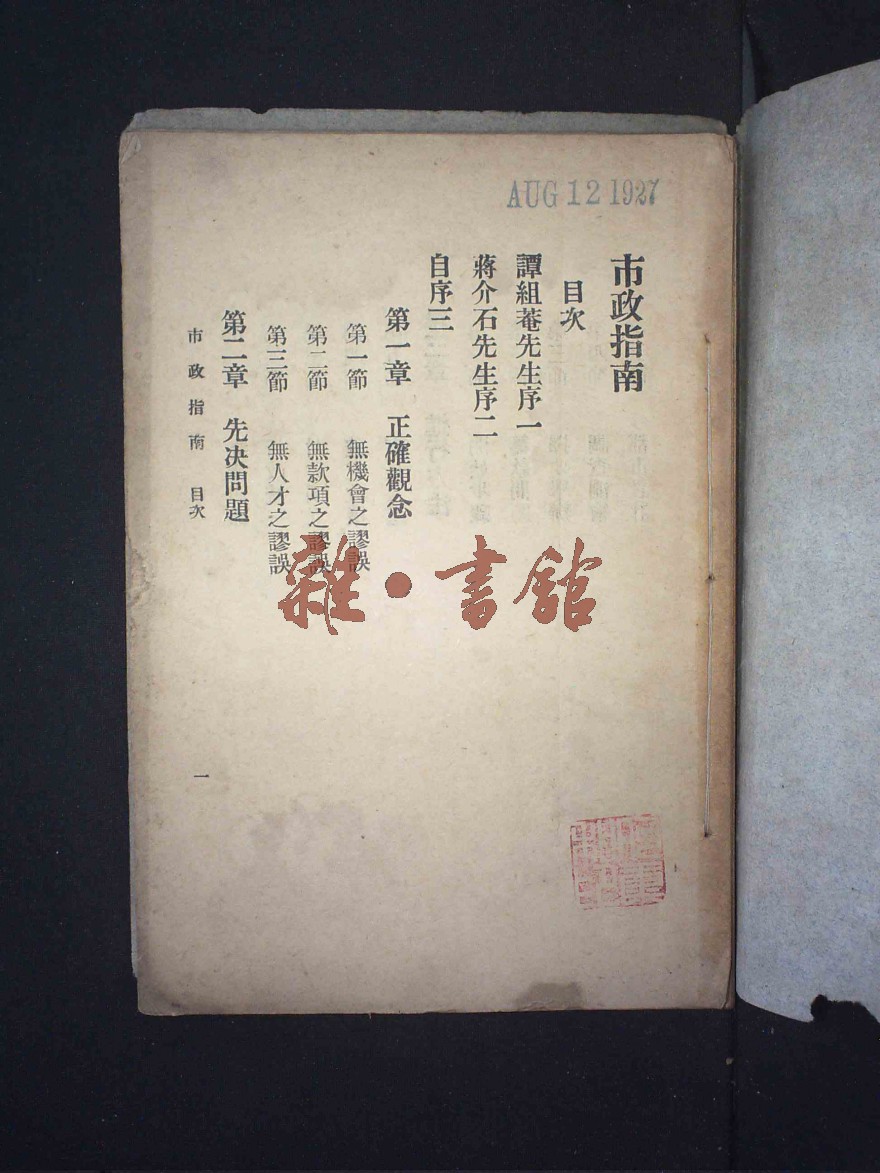 AUG 12 1927
市政指南
目次
譚組菴先生序一
蔣介石先生序二
自序三
第一章 正確觀念
第一節 無機會之謬誤
第二節 無款項之謬誤
第三節 無人才之謬誤
第二章 先决問題
市政指南 目次
一
雜·書館